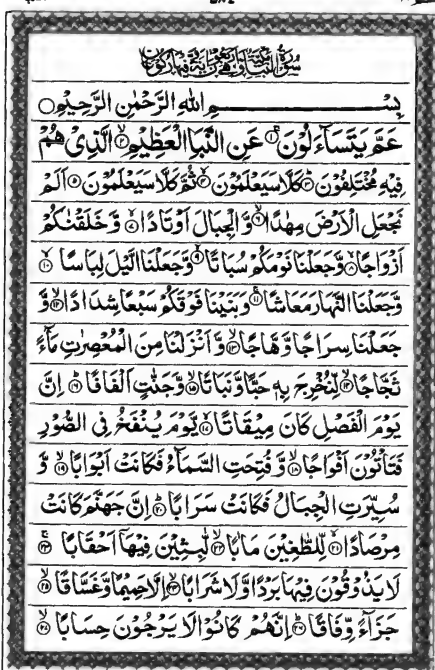 بِسْمِ اللهِ الرَّحْمٰنِ الرَّحِيْمِ
عَمَّ يَتَسَآءَلُوْنَ ۚ۱ عَنِ النَّبَاِ الْعَظِيْمِ ۙ۲ الَّذِيْ هُمْ
فِيْهِ مُخْتَلِفُوْنَ ؕ۳ كَلَّا سَيَعْلَمُوْنَ ۙ۴ ثُمَّ كَلَّا سَيَعْلَمُوْنَ ۵ اَلَمْ
نَجْعَلِ الْاَرْضَ مِهٰدًا ۙ۶ وَّالْجِبَالَ اَوْتَادًا ۪ۙ۷ وَّخَلَقْنٰكُمْ
اَزْوَاجًا ۙ۸ وَّجَعَلْنَا نَوْمَكُمْ سُبَاتًا ۙ۹ وَّجَعَلْنَا الَّيْلَ لِبَاسًا ۙ۱۰
وَّجَعَلْنَا النَّهَارَ مَعَاشًا ۪۱۱ وَبَنَيْنَا فَوْقَكُمْ سَبْعًا شِدَادًا ۙ۱۲ وَّ
جَعَلْنَا سِرَاجًا وَّهَّاجًا ۪ۙ۱۳ وَّاَنْزَلْنَا مِنَ الْمُعْصِرٰتِ مَآءً
ثَجَّاجًا ۙ۱۴ لِّنُخْرِجَ بِهٖ حَبًّا وَّنَبَاتًا ۙ۱۵ وَّجَنّٰتٍ اَلْفَافًا ؕ۱۶ اِنَّ
يَوْمَ الْفَصْلِ كَانَ مِيْقَاتًا ۙ۱۷ يَّوْمَ يُنْفَخُ فِي الصُّوْرِ
فَتَاْتُوْنَ اَفْوَاجًا ۙ۱۸ وَّفُتِحَتِ السَّمَآءُ فَكَانَتْ اَبْوَابًا ۙ۱۹ وَّ
سُيِّرَتِ الْجِبَالُ فَكَانَتْ سَرَابًا ؕ۲۰ اِنَّ جَهَنَّمَ كَانَتْ
مِرْصَادًا ۪ۙ۲۱ لِّلطّٰغِيْنَ مَاٰبًا ۙ۲۲ لّٰبِثِيْنَ فِيْهَآ اَحْقَابًا ۚ۲۳
لَا يَذُوْقُوْنَ فِيْهَا بَرْدًا وَّلَا شَرَابًا ۙ۲۴ اِلَّا حَمِيْمًا وَّغَسَّاقًا ۙ۲۵
جَزَآءً وِّفَاقًا ؕ۲۶ اِنَّهُمْ كَانُوْا لَا يَرْجُوْنَ حِسَابًا ۙ۲۷